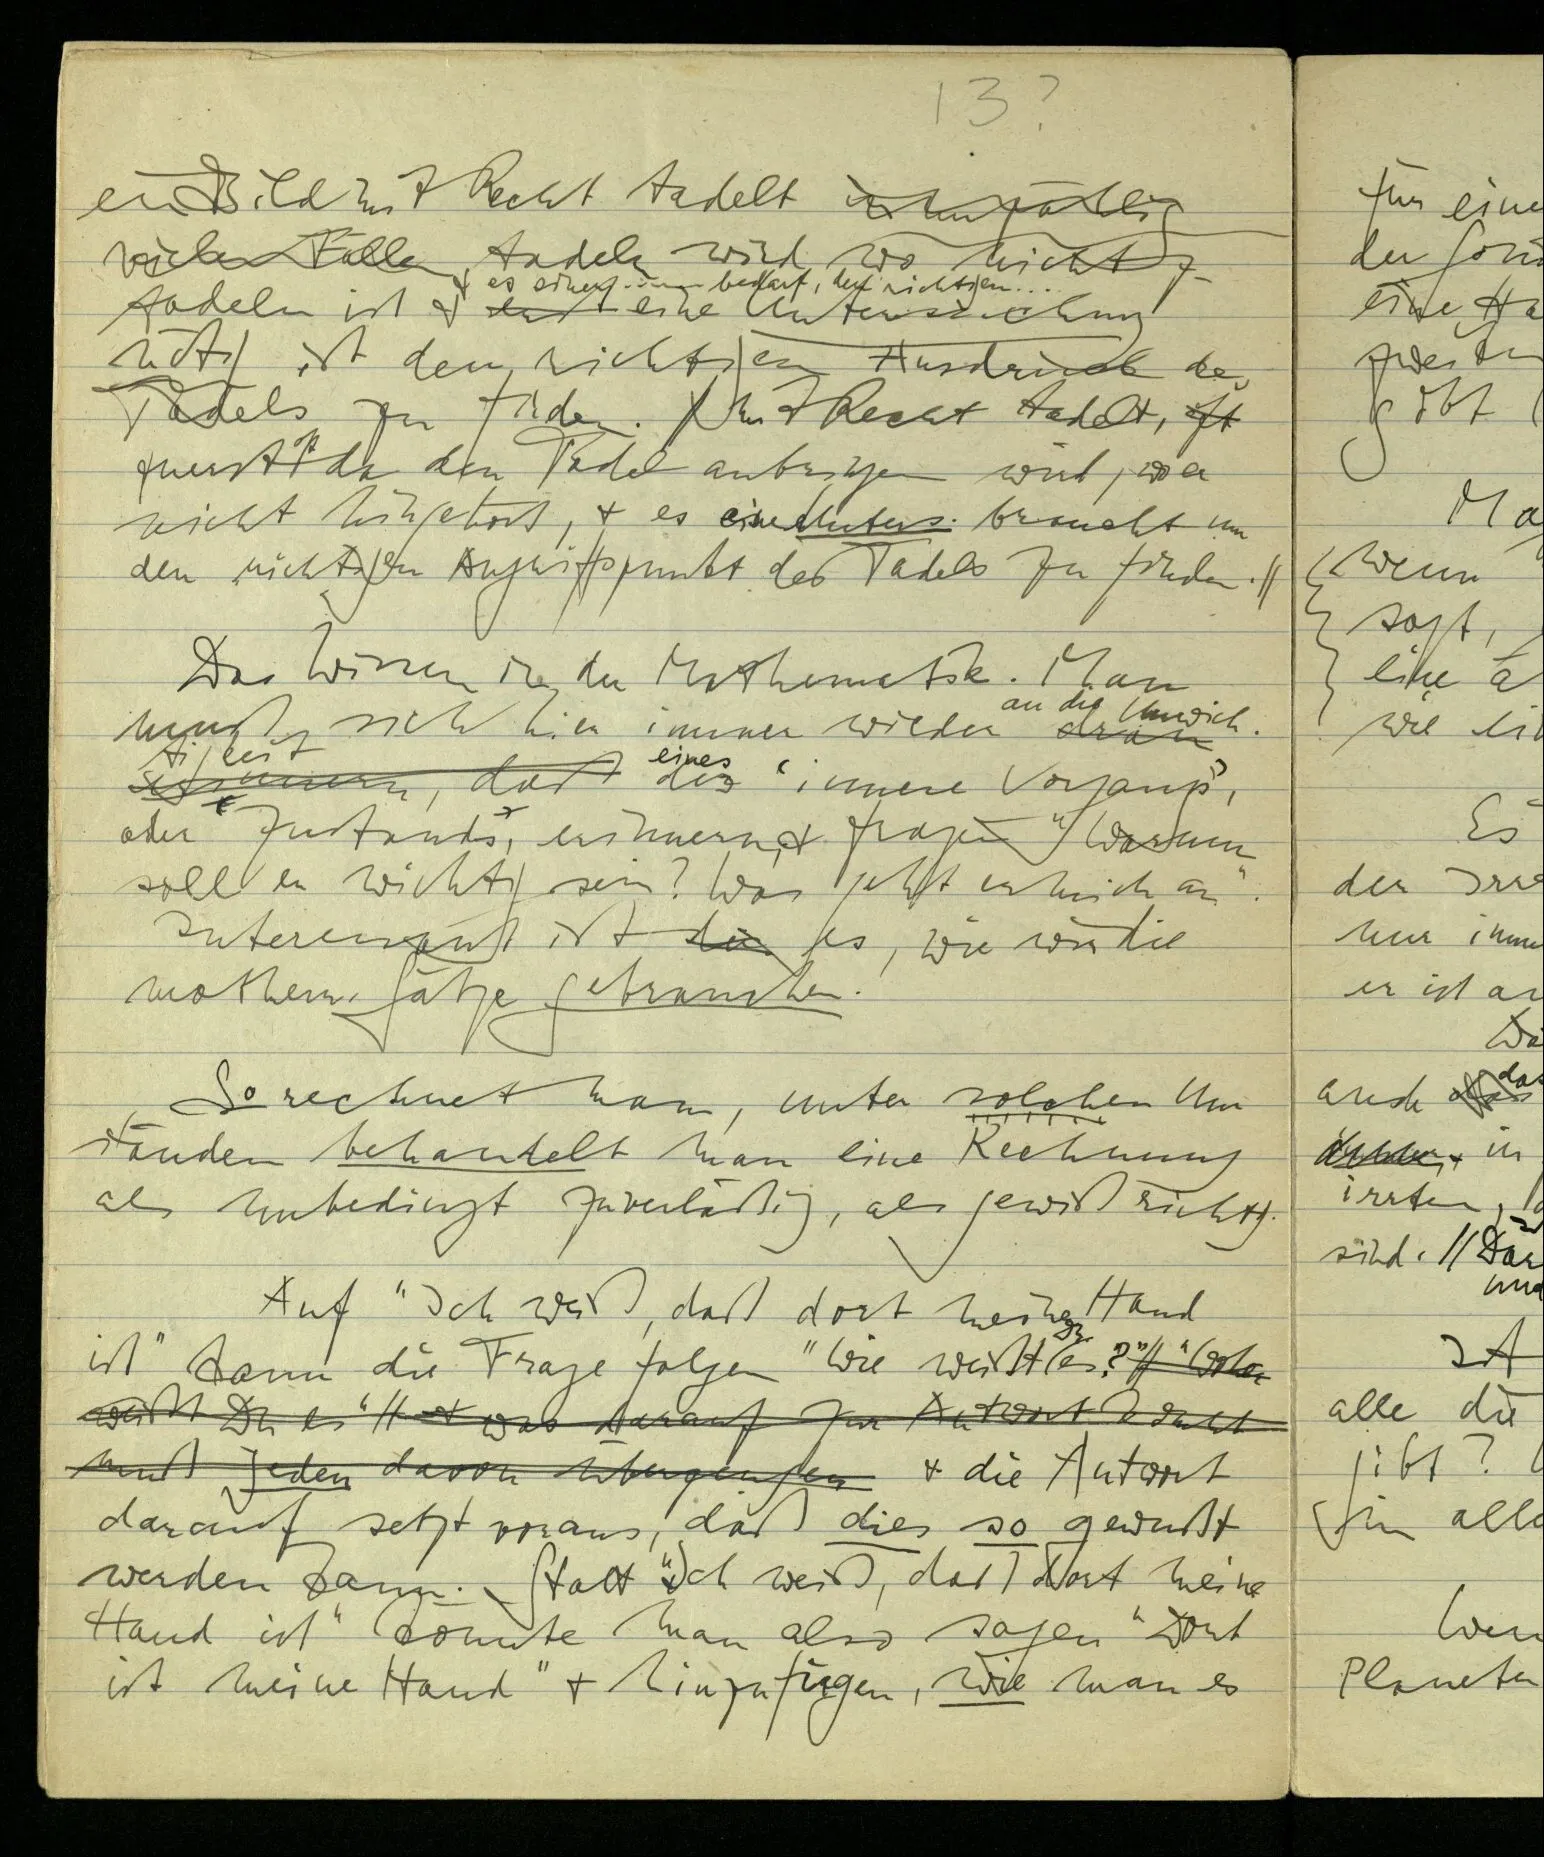 13?
ein Bild mit Recht tadelt in unzählig
vielen Fällen tadeln wird, wo nichts z.
es einer bedarf, den richtigen...
tadeln ist & eine Untersuchung
nötig ist den richtigen Ausdruck des
Tadels zu finden. // mit Recht tadelt, oft
zuerst da den Tadel anbringen wird, wo er
nicht hingehört, & es eine Unters. braucht um
den richtigen Angriffspunkt des Tadels zu finden. //
Das Wissen in der Mathematik. Man
an die Unwich-
muß sich hier immer wieder dran
tigkeit eines
erinnern, daß des ‘innere Vorgangs’,
oder ‘Zustands’, erinnern, & fragen “Warum
soll er wichtig sein? Was geht er mich an”.
Interessant ist es, wie wir die
mathem. Sätze gebrauchen.
So rechnet man, unter solchen Um-
ständen behandelt man eine Rechnung
als unbedingt zuverläßig, als gewiß richtig.
Auf “Ich weiß, daß dort meine Hand
ist” kann die Frage folgen “Wie weißt Du es?” // “Woher
weißt Du es” // & was darauf zur Antwort
muß jeden davon überzeugen & die Antwort
darauf setzt voraus, daß dies so gewußt
werden kann. Statt “Ich weiß, daß dort meine
Hand ist” könnte man also sagen “Dort
ist meine Hand” & hinzufügen, wie man es
für eine
eine Ha
gibt
Ma
wenn
sagt,
eine a
Es
der Irr
nur imm
er ist an
auch das
in
irrten,
sind. //
und
Ist
alle die
gibt?
in alle
Wen
Planeten